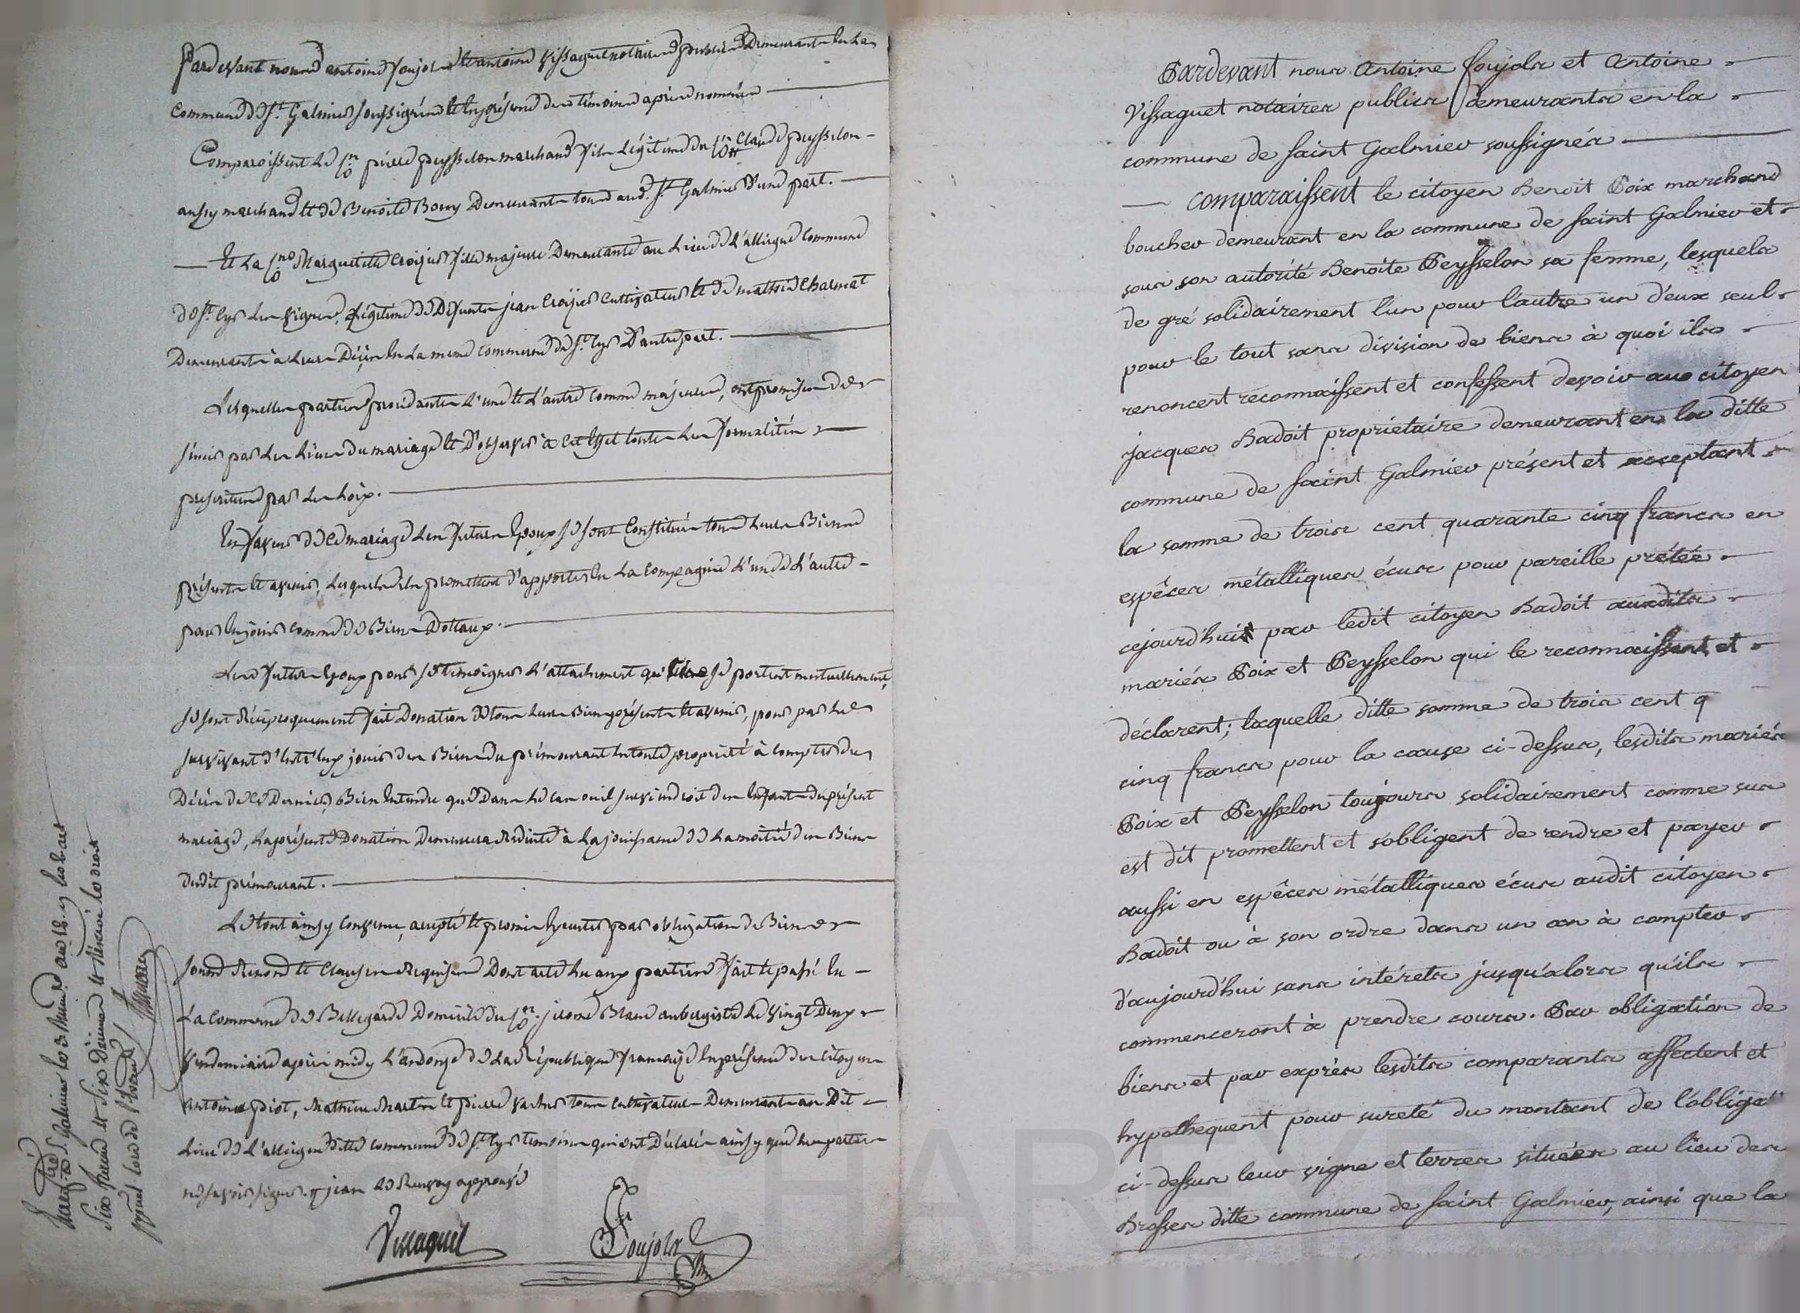 Pardevant nous antoine foujols et antoine Vissaguet notaires publics Demeurants en la
Commune de St. Galmier soussignés et en présence des témoins après nommés
Comparoissent Le Cen pierre peysselon marchand fils Légitime du Cen Claude peysselon
aussy marchand et de Benoite Bouy Demeurants tous aud. St Galmier d'une part.
Et La Cne Marguerite Croizier fille majeure Demeurante au Lieu de L'allier commune
de St. Cyr Les vignes, Légitime de Défunts jean Croizier cultivateur et de
Demeurants à Leurs Décès en La meme Commune de St. Cyr D'autre part.
Lesquelles parties procédantes L'une et L'autre Comme majeures, ont promis de
s'unir par Les Liens du mariage et D'observer à cet effet toutes Les formalités
prescrites par Les Loix.
En faveur de ce mariage Les futurs Epoux se sont Constitués tous Leurs Biens
présents et avenir, Lesquels ils promettent d'apporter en La Compagnie L'un de L'autre
pour en jouir comme de Biens Dotaux.
Les futurs Epoux pour se témoigner L'attachement qu'ils se portent mutuellement,
se font réciproquement fait Donation de tous Leurs Biens présents et avenir, pour par Le
survivant d'entr'eux jouir des Biens du prémourant en toute propriété à compter du
Décès de ce Dernier, Bien Entendu que Dans Le cas ou il surviendroit des Enfants du présent
mariage, La présente Donation Demeurera réduite à La jouissance de La moitié des Biens
dudit prémourant.
Le tout ainsy convenu, accepté et promis exécuter par obligation de Biens
soumis renonc et Clauses requises Dont acte Lu aux parties fait et passé en
La Commune de Bellegarde Domicile du Cen jerome Blanc aubergiste Le vingt Deux
vendemiaire après midy L'an onze de La République française En présence des Citoyens
antoine piot, Mathieu et pierre tous cultivateurs Demeurants au Dit
Lieu de L'allier ditte commune de St. Cyr témoins qui ont Déclaré ainsy que Les parties
ne savoir signer
Vissaguet Foujols
Enregistré à St. Galmier le 3 Brumaire an 11
Six francs et Six Décimes
Pardevant nous Antoine Foujols et Antoine
Vissaguet notaires publics demeurants en la
commune de Saint Galmier soussignés
comparaissent le citoyen Benoit Poix marchand
boucher demeurant en la commune de Saint Galmier et
sous son autorité Benoite Peysselon sa femme, lesquels
de gré solidairement l'un pour l'autre un d'eux seul
pour le tout sans division de biens à quoi ils
renoncent reconnaissent et confessent devoir au citoyen
jacques Badoit propriétaire demeurant en la ditte
commune de Saint Galmier présent et acceptant
la somme de trois cent quarante cinq francs en
espêces métalliques écus pour pareille prêtée
cejourd'hui par ledit citoyen Badoit auxdits
mariés Poix et Peysselon qui le reconnaissent et
déclarent; laquelle ditte somme de trois cent q
cinq francs pour la cause ci-dessus, lesdits mariés
Poix et Peysselon toujours solidairement comme sus
est dit promettent et s'obligent de rendre et payer
aussi en espêces métalliques écus audit citoyen
Badoit ou à son ordre dans un an à compter
d'aujourd'hui sans intérêts jusqu'alors qu'ils
commenceront à prendre cours. Par obligation de
biens et par exprès lesdits comparants affectent et
hypothequent pour sureté du montant de l'obligat
ci-dessus leur vigne et terres situées au lieu des
Brosses ditte commune de Saint Galmier, ainsi que la